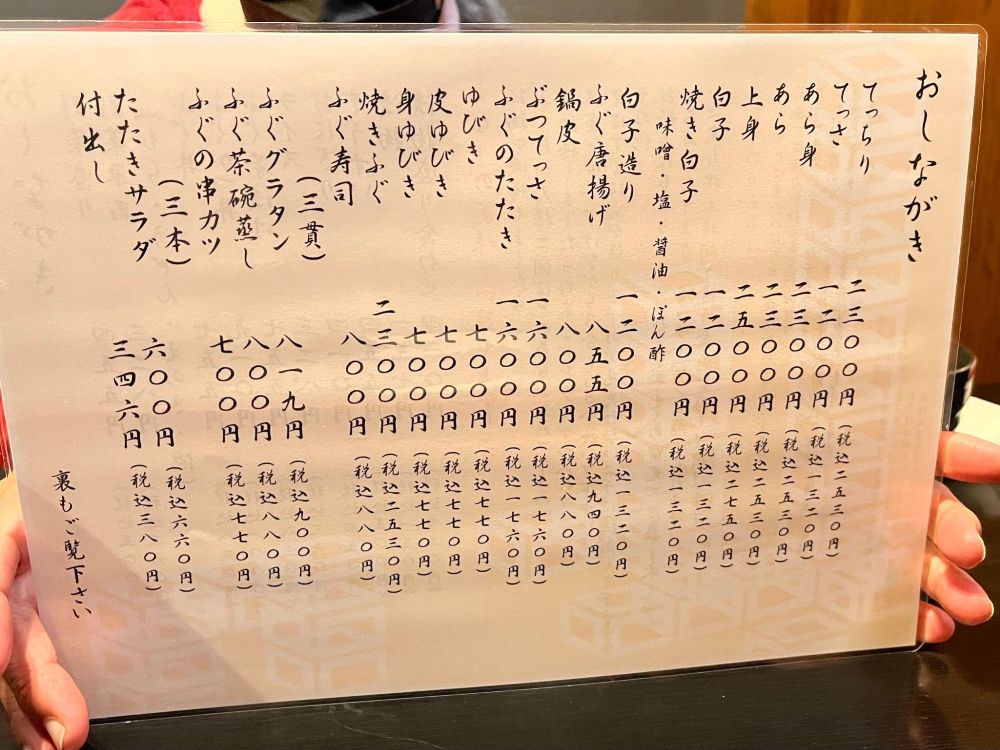 おしながき
てっちり 二三〇〇円（税込二五三〇円）
てっさ 一二〇〇円（税込一三二〇円）
あら身 二三〇〇円（税込二五三〇円）
あら 二三〇〇円（税込二五三〇円）
上身 二五〇〇円（税込二七五〇円）
白子 一二〇〇円（税込一三二〇円）
焼き白子 一二〇〇円（税込一三二〇円）
味噌・塩・醤油・ぽん酢
白子造り 一二〇〇円（税込一三二〇円）
ふぐ唐揚げ 八五五円（税込九四〇円）
鍋皮 八〇〇円（税込八八〇円）
ぶつてっさ 一六〇〇円（税込一七六〇円）
ふぐのたたき 一六〇〇円（税込一七六〇円）
ゆびき 七〇〇円（税込七七〇円）
皮ゆびき 七〇〇円（税込七七〇円）
身ゆびき 七〇〇円（税込七七〇円）
焼きふぐ 二三〇〇円（税込二五三〇円）
ふぐ寿司 八〇〇円（税込八八〇円）
（三貫）
ふぐグラタン 八一九円（税込九〇〇円）
ふぐ茶碗蒸し 八〇〇円（税込八八〇円）
ふぐの串カツ 七〇〇円（税込七七〇円）
（三本）
たたきサラダ 六〇〇円（税込六六〇円）
付出し 三四六円（税込三八〇円）
裏もご覧下さい